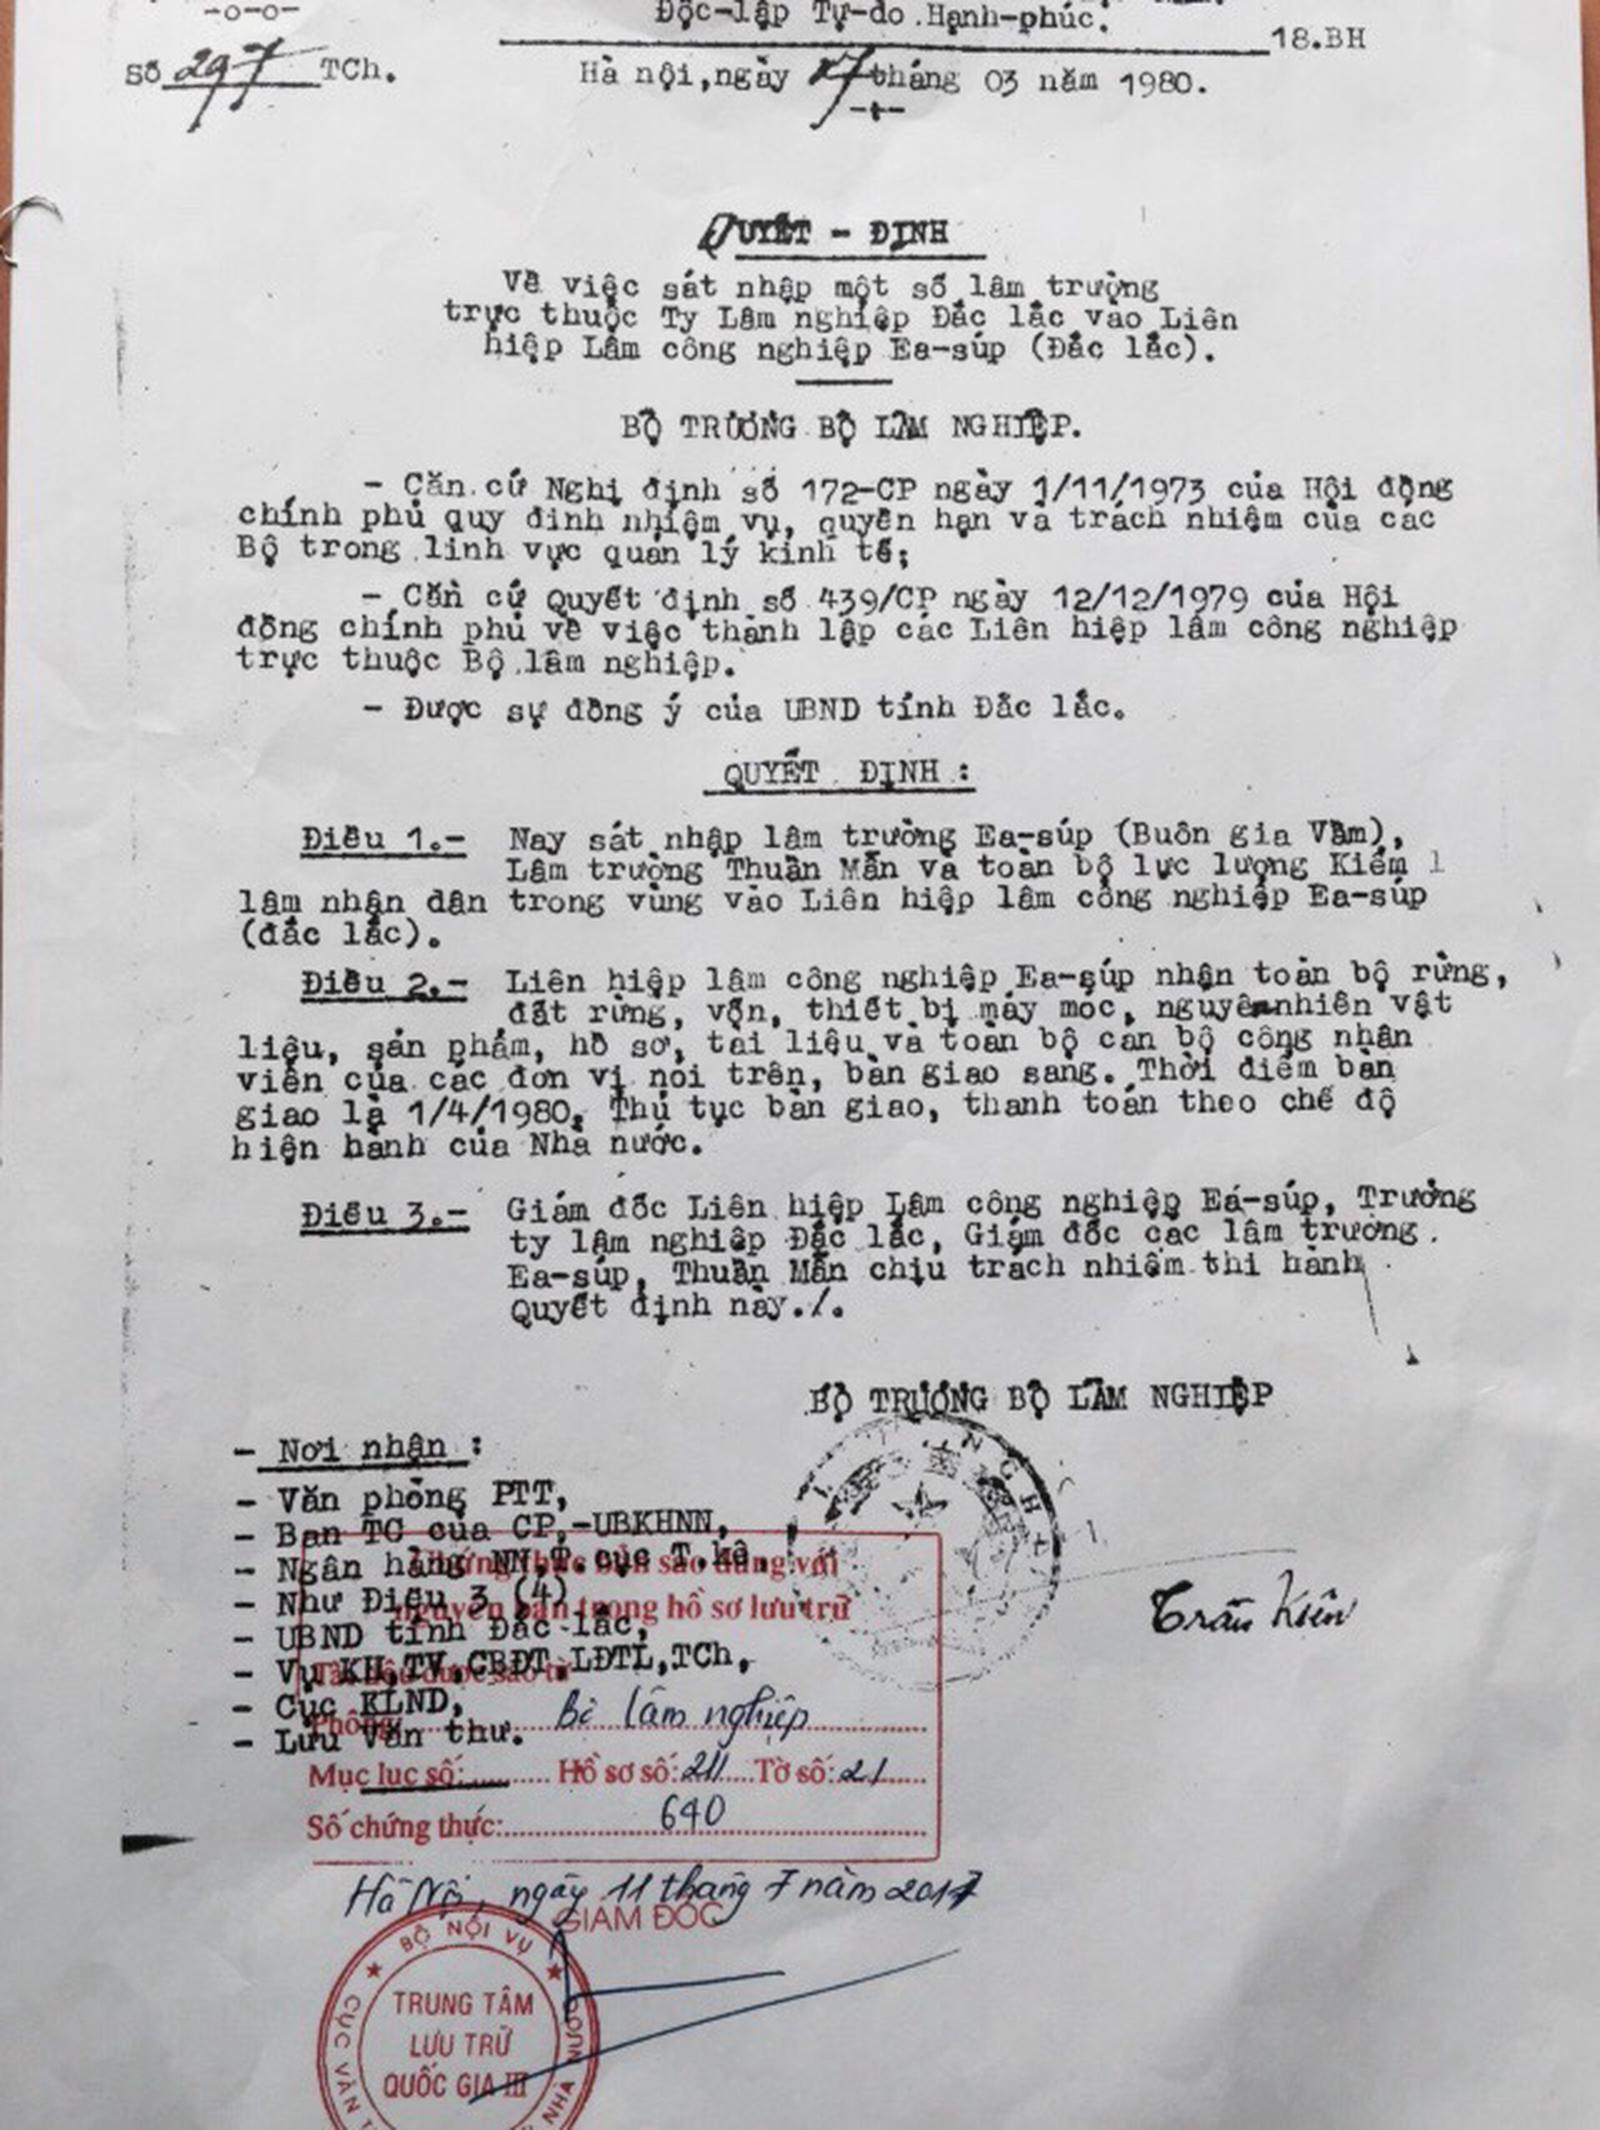 -o-o-
Độc-lập Tự-do Hạnh-phúc.
18.BH
Số 297 TCh.
Hà nội, ngày 17 tháng 03 năm 1980.
QUYẾT - ĐỊNH
Về việc sát nhập một số lâm trường
trực thuộc Ty Lâm nghiệp Đắc lắc vào Liên
hiệp Lâm công nghiệp Ea-súp (Đắc lắc).
BỘ TRƯỞNG BỘ LÂM NGHIỆP.
- Căn cứ Nghị định số 172-CP ngày 1/11/1973 của Hội động
chính phủ quy định nhiệm vụ, quyền hạn và trách nhiệm của các
Bộ trong linh vực quản lý kinh tế;
- Căn cứ Quyết định số 439/CP ngày 12/12/1979 của Hội
đồng chính phủ về việc thành lập các Liên hiệp lâm công nghiệp
trực thuộc Bộ lâm nghiệp.
- Được sự đồng ý của UBND tỉnh Đắc lắc.
QUYẾT ĐỊNH :
Điều 1.- Nay sát nhập lâm trường Ea-súp (Buôn gia Vầm),
Lâm trường Thuần Mẫn và toàn bộ lực lượng Kiểm l
lâm nhận dân trong vùng vào Liên hiệp lâm công nghiệp Ea-súp
(đắc lắc).
Điều 2.- Liên hiệp lâm công nghiệp Ea-súp nhận toàn bộ rừng,
đất rừng, vốn, thiết bị máy móc, nguyên nhiên vật
liệu, sản phẩm, hồ sơ, tài liệu và toàn bộ cán bộ công nhân
viên của các đơn vị nói trên, bàn giao sang. Thời điểm bàn
giao là 1/4/1980. Thủ tục bàn giao, thanh toán theo chế độ
hiện hành của Nhà nước.
Điều 3.- Giám đốc Liên hiệp Lâm công nghiệp Ea-súp, Trưởng
ty lâm nghiệp Đắc lắc, Giám đốc các lâm trường
Ea-súp, Thuần Mẫn chịu trách nhiệm thi hành
Quyết định này./.
BỘ TRƯỞNG BỘ LÂM NGHIỆP
- Nơi nhận :
- Văn phòng PTT,
- Ban TC của CP,-UBKHNN,
- Ngân hàng NN,T.cục T.kê,
- Như Điều 3 (4)
- UBND tỉnh Đắc lắc,
- Vụ KH,TV,CBĐT,LĐTL,TCh,
- Cục KLND,
- Lưu Văn thư.
Trần Kiên
Chứng thực bản sao đúng với
nguyên bản trong hồ sơ lưu trữ
Tài liệu được sao từ
Phông: Bộ lâm nghiệp
Mục lục số: Hồ sơ số: 211 Tờ số: 21
Số chứng thực: 640
Hà Nội, ngày 11 tháng 7 năm 2017
GIÁM ĐỐC
BỘ NỘI VỤ
TRUNG TÂM
LƯU TRỮ
QUỐC GIA III